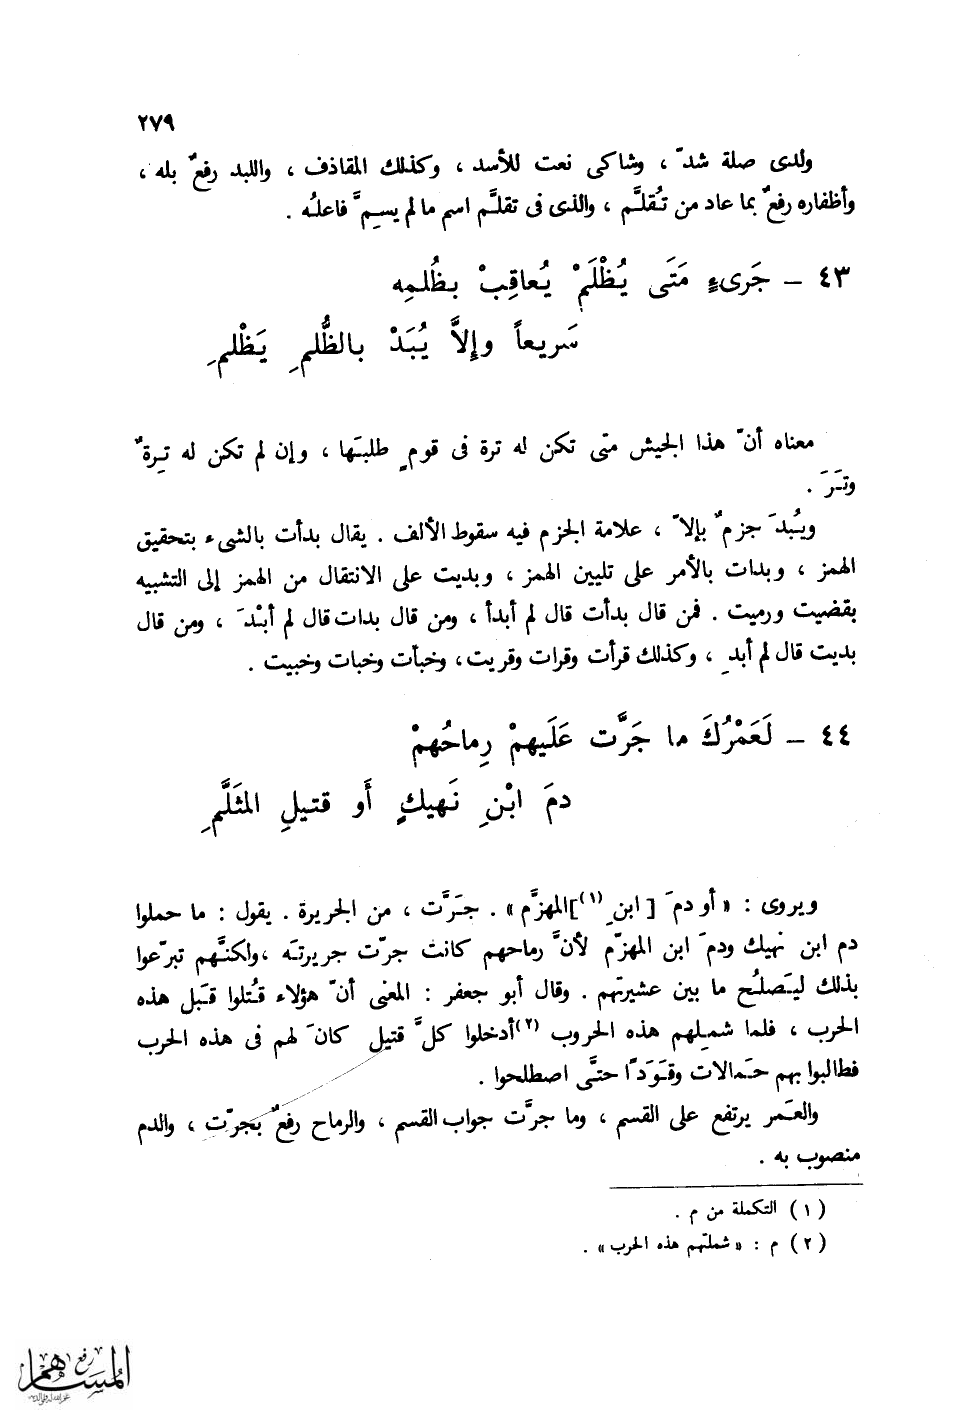 ٢٧٩
ولدى صلة شدّ ، وشاكى نعت للأسد ، وكذلك المقاذف ، واللبد رفعٌ بله ،
وأظفاره رفعٌ بما عاد من تُقلَّم ، والذى فى تقلَّم اسم مالم يسمَّ فاعلُه .
٤٣ – جَرىءٍ مَتَى يُظْلَمْ يُعاقِبْ بظُلمِه
سَريعاً وإلاَّ يُبَدْ بالظُّلمِ يَظْلمِ
معناه أنّ هذا الجيش متى تكن له ترة فى قومٍ طلبَها ، وإن لم تكن له تِرةٌ
وتَرَ .
ويُبدَ جزمٌ بإلاّ ، علامة الجزم فيه سقوط الألف . يقال بدأت بالشىء بتحقيق
الهمز ، وبدات بالأمر على تليين الهمز ، وبديت على الانتقال من الهمز إلى التشبيه
بقضيت ورميت . فمن قال بدأت قال لم أبدأ ، ومن قال بدات قال لم أبْدَ ، ومن قال
بديت قال لم أبدِ ، وكذلك قرأت وقرات وقريت ، وخبأت وخبات وخبيت .
٤٤ – لَعَمْرُكَ ما جَرَّت عَلَيهمْ رِماحُهمْ
دمَ ابْنِ نَهيكٍ أَو قتيلِ المثَلَّمِ
ويروى : « أو دمَ [ ابنِ (١)]المهزَّم » . جَرَّت ، من الجريرة . يقول : ما حملوا
دم ابن نهيك ودمَ ابن المهزّم لأنَّ رماحهم كانت جرّت جريرتَه ،ولكنَّهم تبرّعوا
بذلك ليَصلُح ما بين عشيرتهم . وقال أبو جعفر : المعنى أنّ هؤلاء قُتلوا قَبل هذه
الحرب ، فلما شملهم هذه الحروب (٢)أدخلوا كلَّ قتيل كانَ لهم فى هذه الحرب
فطالبوا بهم حَمالات وقَوَدًا حتَّى اصطلحوا .
والعَمر يرتفع على القسم ، وما جرَّت جواب القسم ، والرماح رفعٌ بجرّت ، والدم
منصوب به .
( ١ ) التكملة من م .
( ٢ ) م : « شملتهم هذه الحرب » .
المساهم
رفع